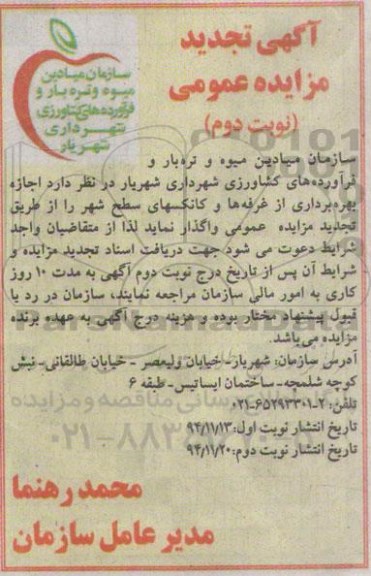 آگهی تجدید
مزایده عمومی
(نوبت دوم)
سازمان میادین
میوه و تره بار و
فرآورده‌های کشاورزی
شهرداری
شهریار
سازمان میادین میوه و تره‌بار و
فرآورده‌های کشاورزی شهرداری شهریار در نظر دارد اجازه
بهره‌برداری از غرفه‌ها و کانکسهای سطح شهر را از طریق
تجدید مزایده عمومی واگذار نماید لذا از متقاضیان واجد
شرایط دعوت می شود جهت دریافت اسناد تجدید مزایده و
شرایط آن پس از تاریخ درج نوبت دوم آگهی به مدت ۱۰ روز
کاری به امور مالی سازمان مراجعه نمایند، سازمان در رد یا
قبول پیشنهاد مختار بوده و هزینه درج آگهی به عهده برنده
مزایده می‌باشد.
آدرس سازمان: شهریار- خیابان ولیعصر - خیابان طالقانی- نبش
کوچه شلمچه- ساختمان ایساتیس- طبقه ۶
تلفن: ۲-۶۵۲۹۳۳۰۱-۰۲۱
تاریخ انتشار نوبت اول: ۹۴/۱۱/۱۳
تاریخ انتشار نوبت دوم: ۹۴/۱۱/۲۰
محمد رهنما
مدیر عامل سازمان